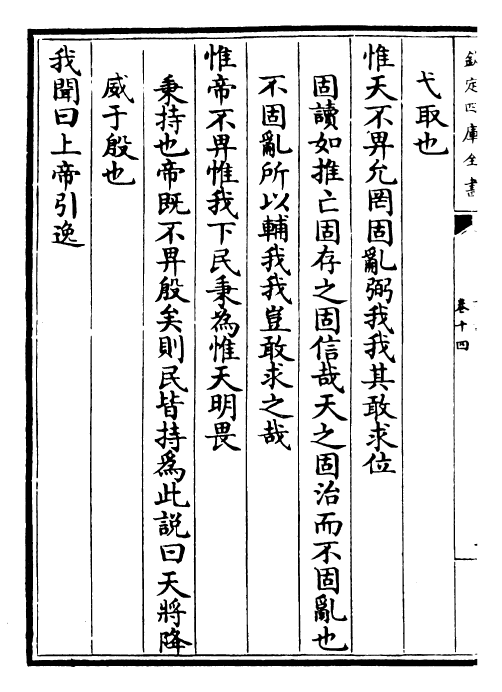 欽定四庫全書
卷十四
弋取也
惟天不畀允罔固亂弼我我其敢求位
固讀如推亡固存之固信哉天之固治而不固亂也
不固亂所以輔我我豈敢求之哉
惟帝不畀惟我下民秉為惟天明畏
秉持也帝既不畀殷矣則民皆持為此説曰天將降
威于殷也
我聞曰上帝引逸